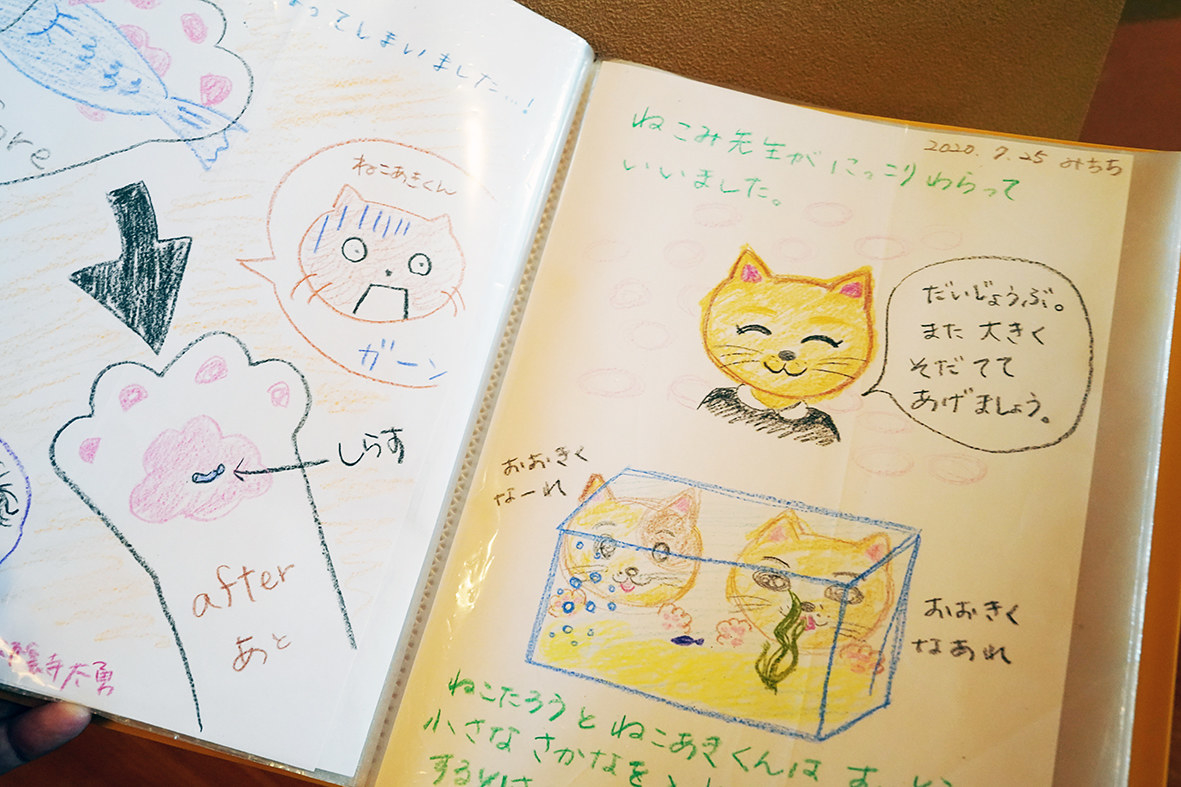 ってしまいました…!
ore
ねこあきくん
ガーン
しらす
after
あと
寺太勇
2020.7.25 みちち
ねこみ先生が にっこり わらって
いいました。
だいじょうぶ。
また 大きく
そだてて
あげましょう。
おおきく
なーれ
おおきく
なあれ
ねこたろうと ねこあきくんは
小さな さかなを